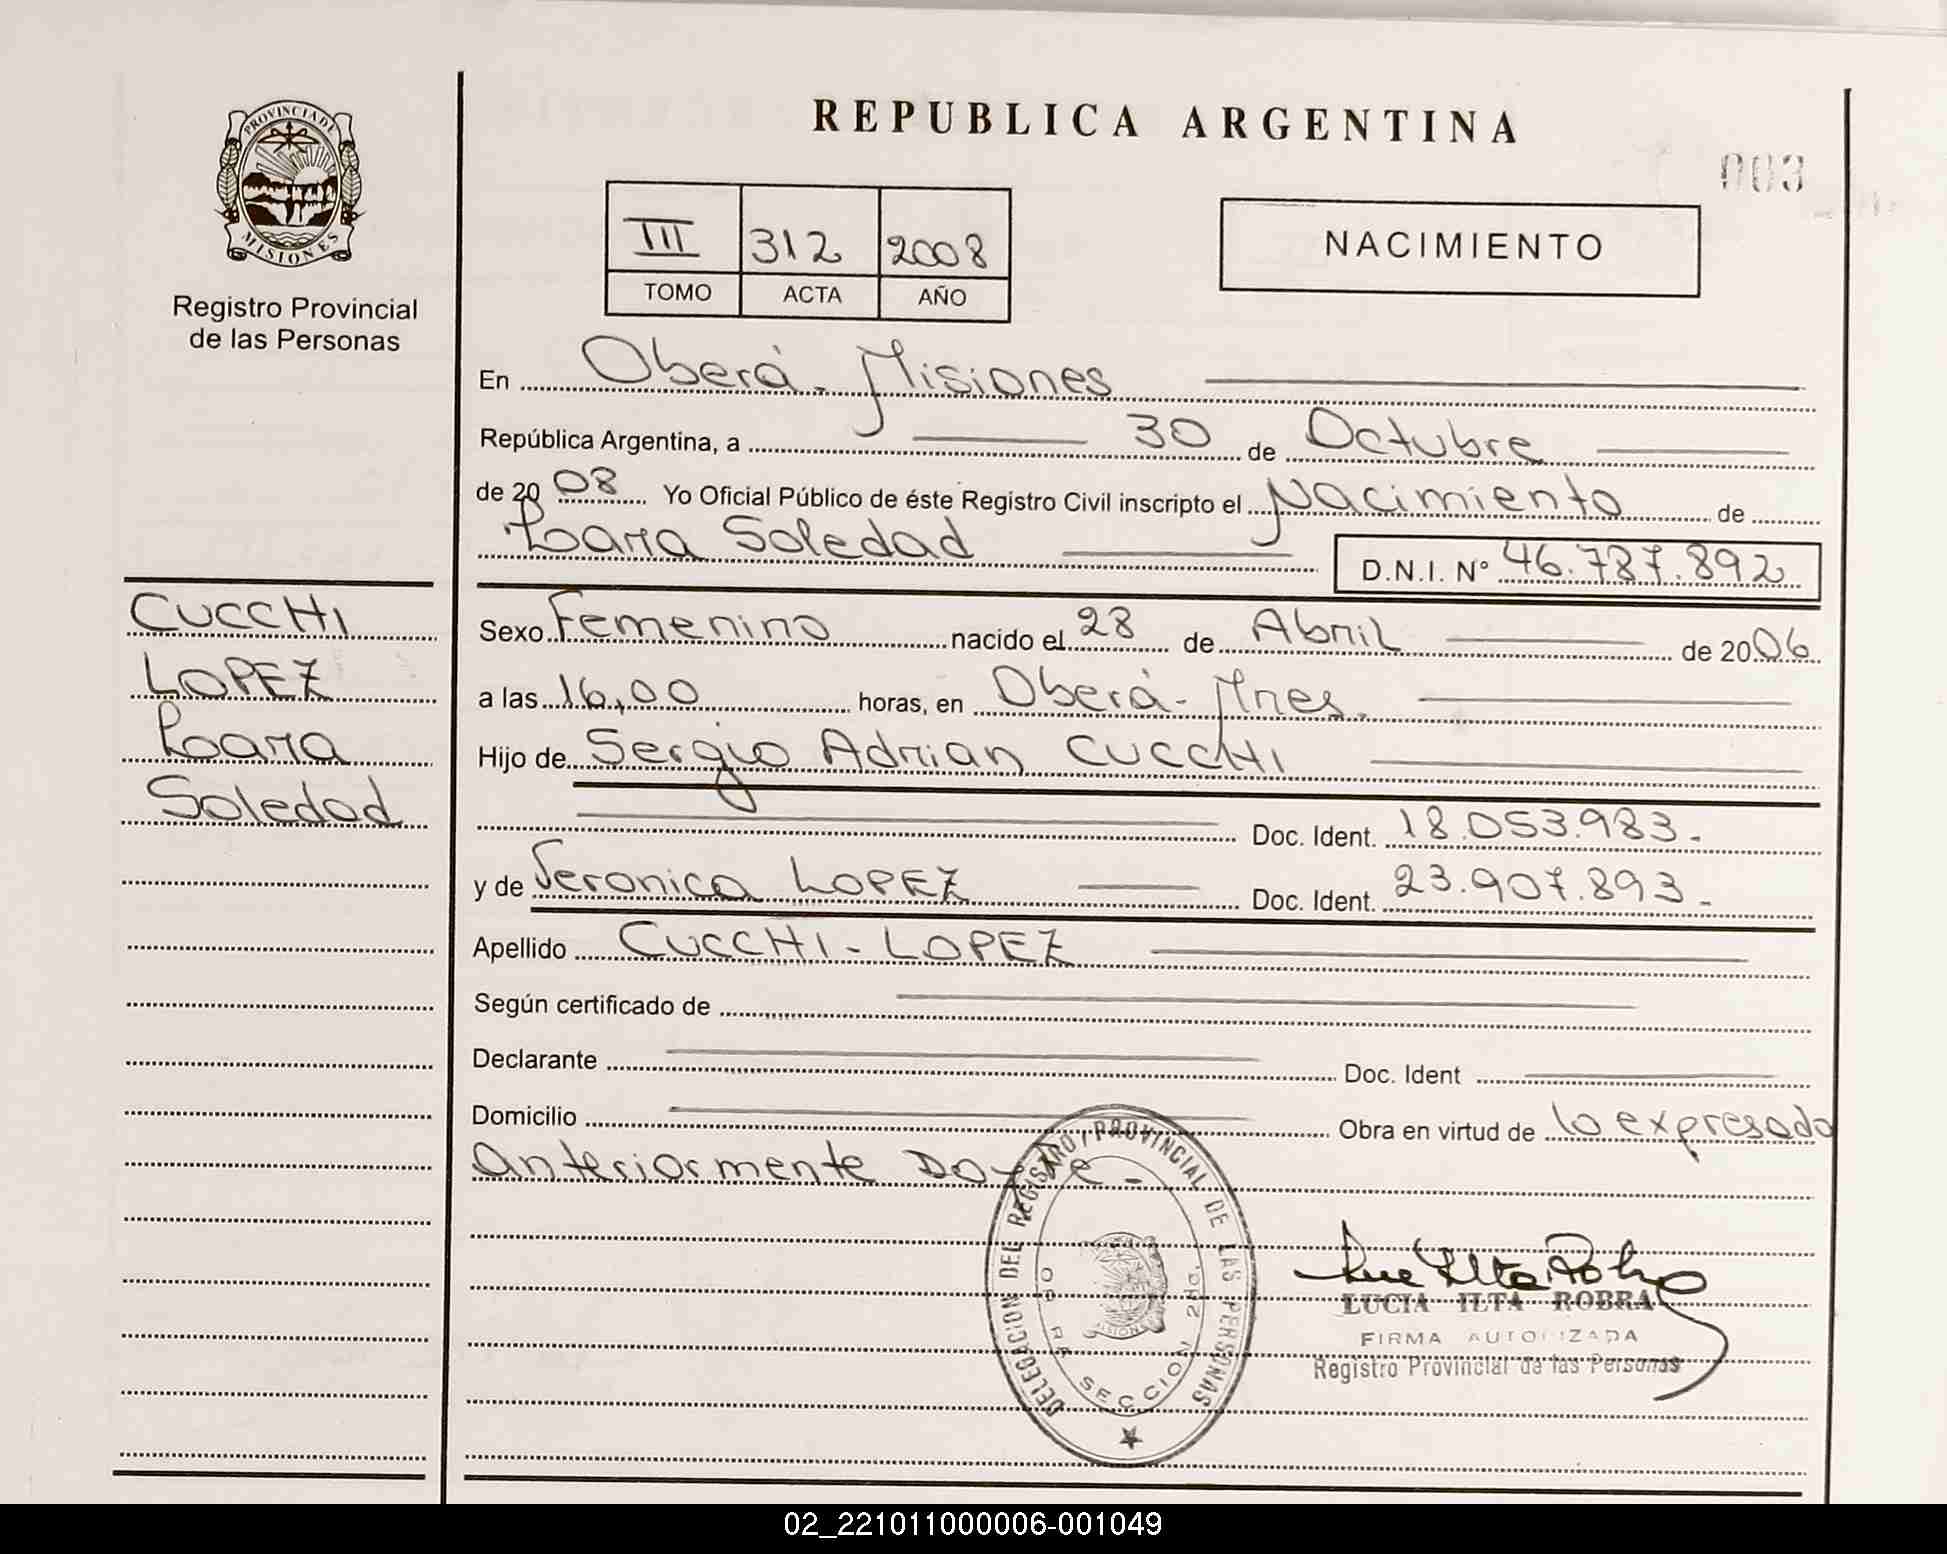 PROVINCIA DE
MISIONES
Registro Provincial
de las Personas
REPUBLICA ARGENTINA
003
III 312 2008
TOMO ACTA AÑO
NACIMIENTO
En Oberá - Misiones
República Argentina, a 30 de Octubre
de 2008 Yo Oficial Público de éste Registro Civil inscripto el Nacimiento de
Soledad D.N.I. N° 46.787.892
CUCCHI
LOPEZ
Soledad
Sexo Femenino nacido el 28 de Abril de 2006
a las 16,00 horas, en Oberá - Mnes.
Hijo de Sergio Adrian CUCCHI
Doc. Ident. 18.053.983.-
y de Veronica LOPEZ Doc. Ident. 23.907.893.-
Apellido CUCCHI - LOPEZ
Según certificado de
Declarante Doc. Ident
Domicilio Obra en virtud de lo expresado
anteriormente Doy fe -
DELEGACION DEL REGISTRO PROVINCIAL DE LAS PERSONAS
OBERA SECCION 2da.
LUCIA ILTA ROBRA
FIRMA AUTORIZADA
Registro Provincial de las Personas
02_221011000006-001049